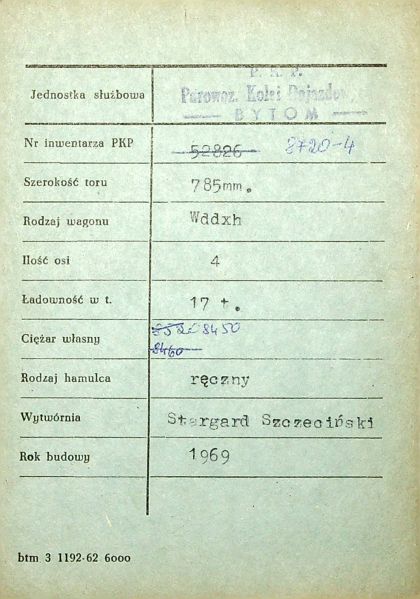 P. K. P.
Jednostka służbowa Parowoz. Kolei Dojazdow.
BYTOM
Nr inwentarza PKP 52826 8720-4
Szerokość toru 785mm.
Rodzaj wagonu Wddxh
Ilość osi 4
Ładowność w t. 17 t.
8520 8450
Ciężar własny
8460
Rodzaj hamulca ręczny
Wytwórnia Stargard Szczeciński
Rok budowy 1969
btm 3 1192-62 6000